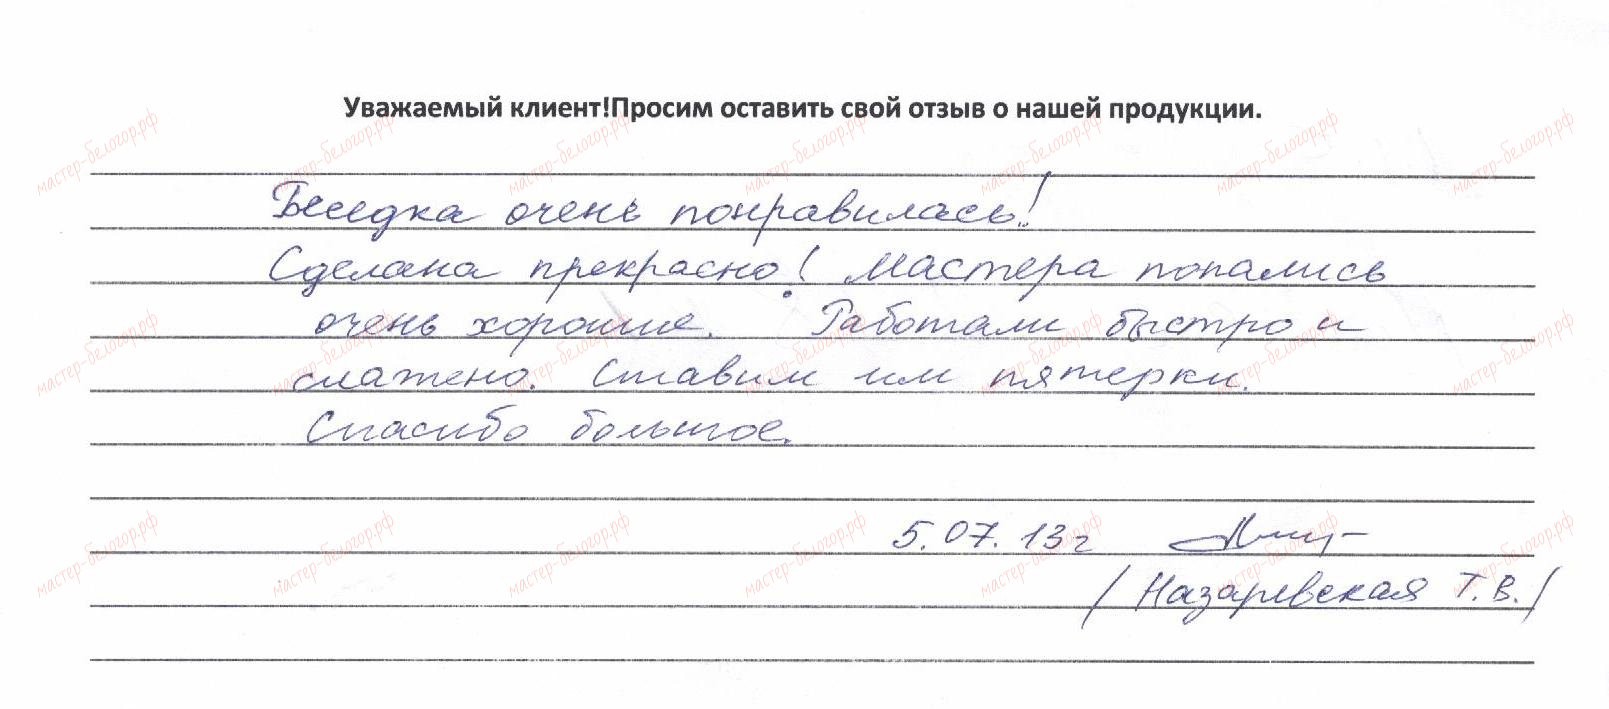 Уважаемый клиент!Просим оставить свой отзыв о нашей продукции.
Беседка очень понравилась!
Сделана прекрасно! Мастера попались
очень хорошие. Работали быстро и
слажено. Ставим им пятерки.
Спасибо большое.
5.07.13г
/Назаревская Т.В./
мастер-белогор.рф